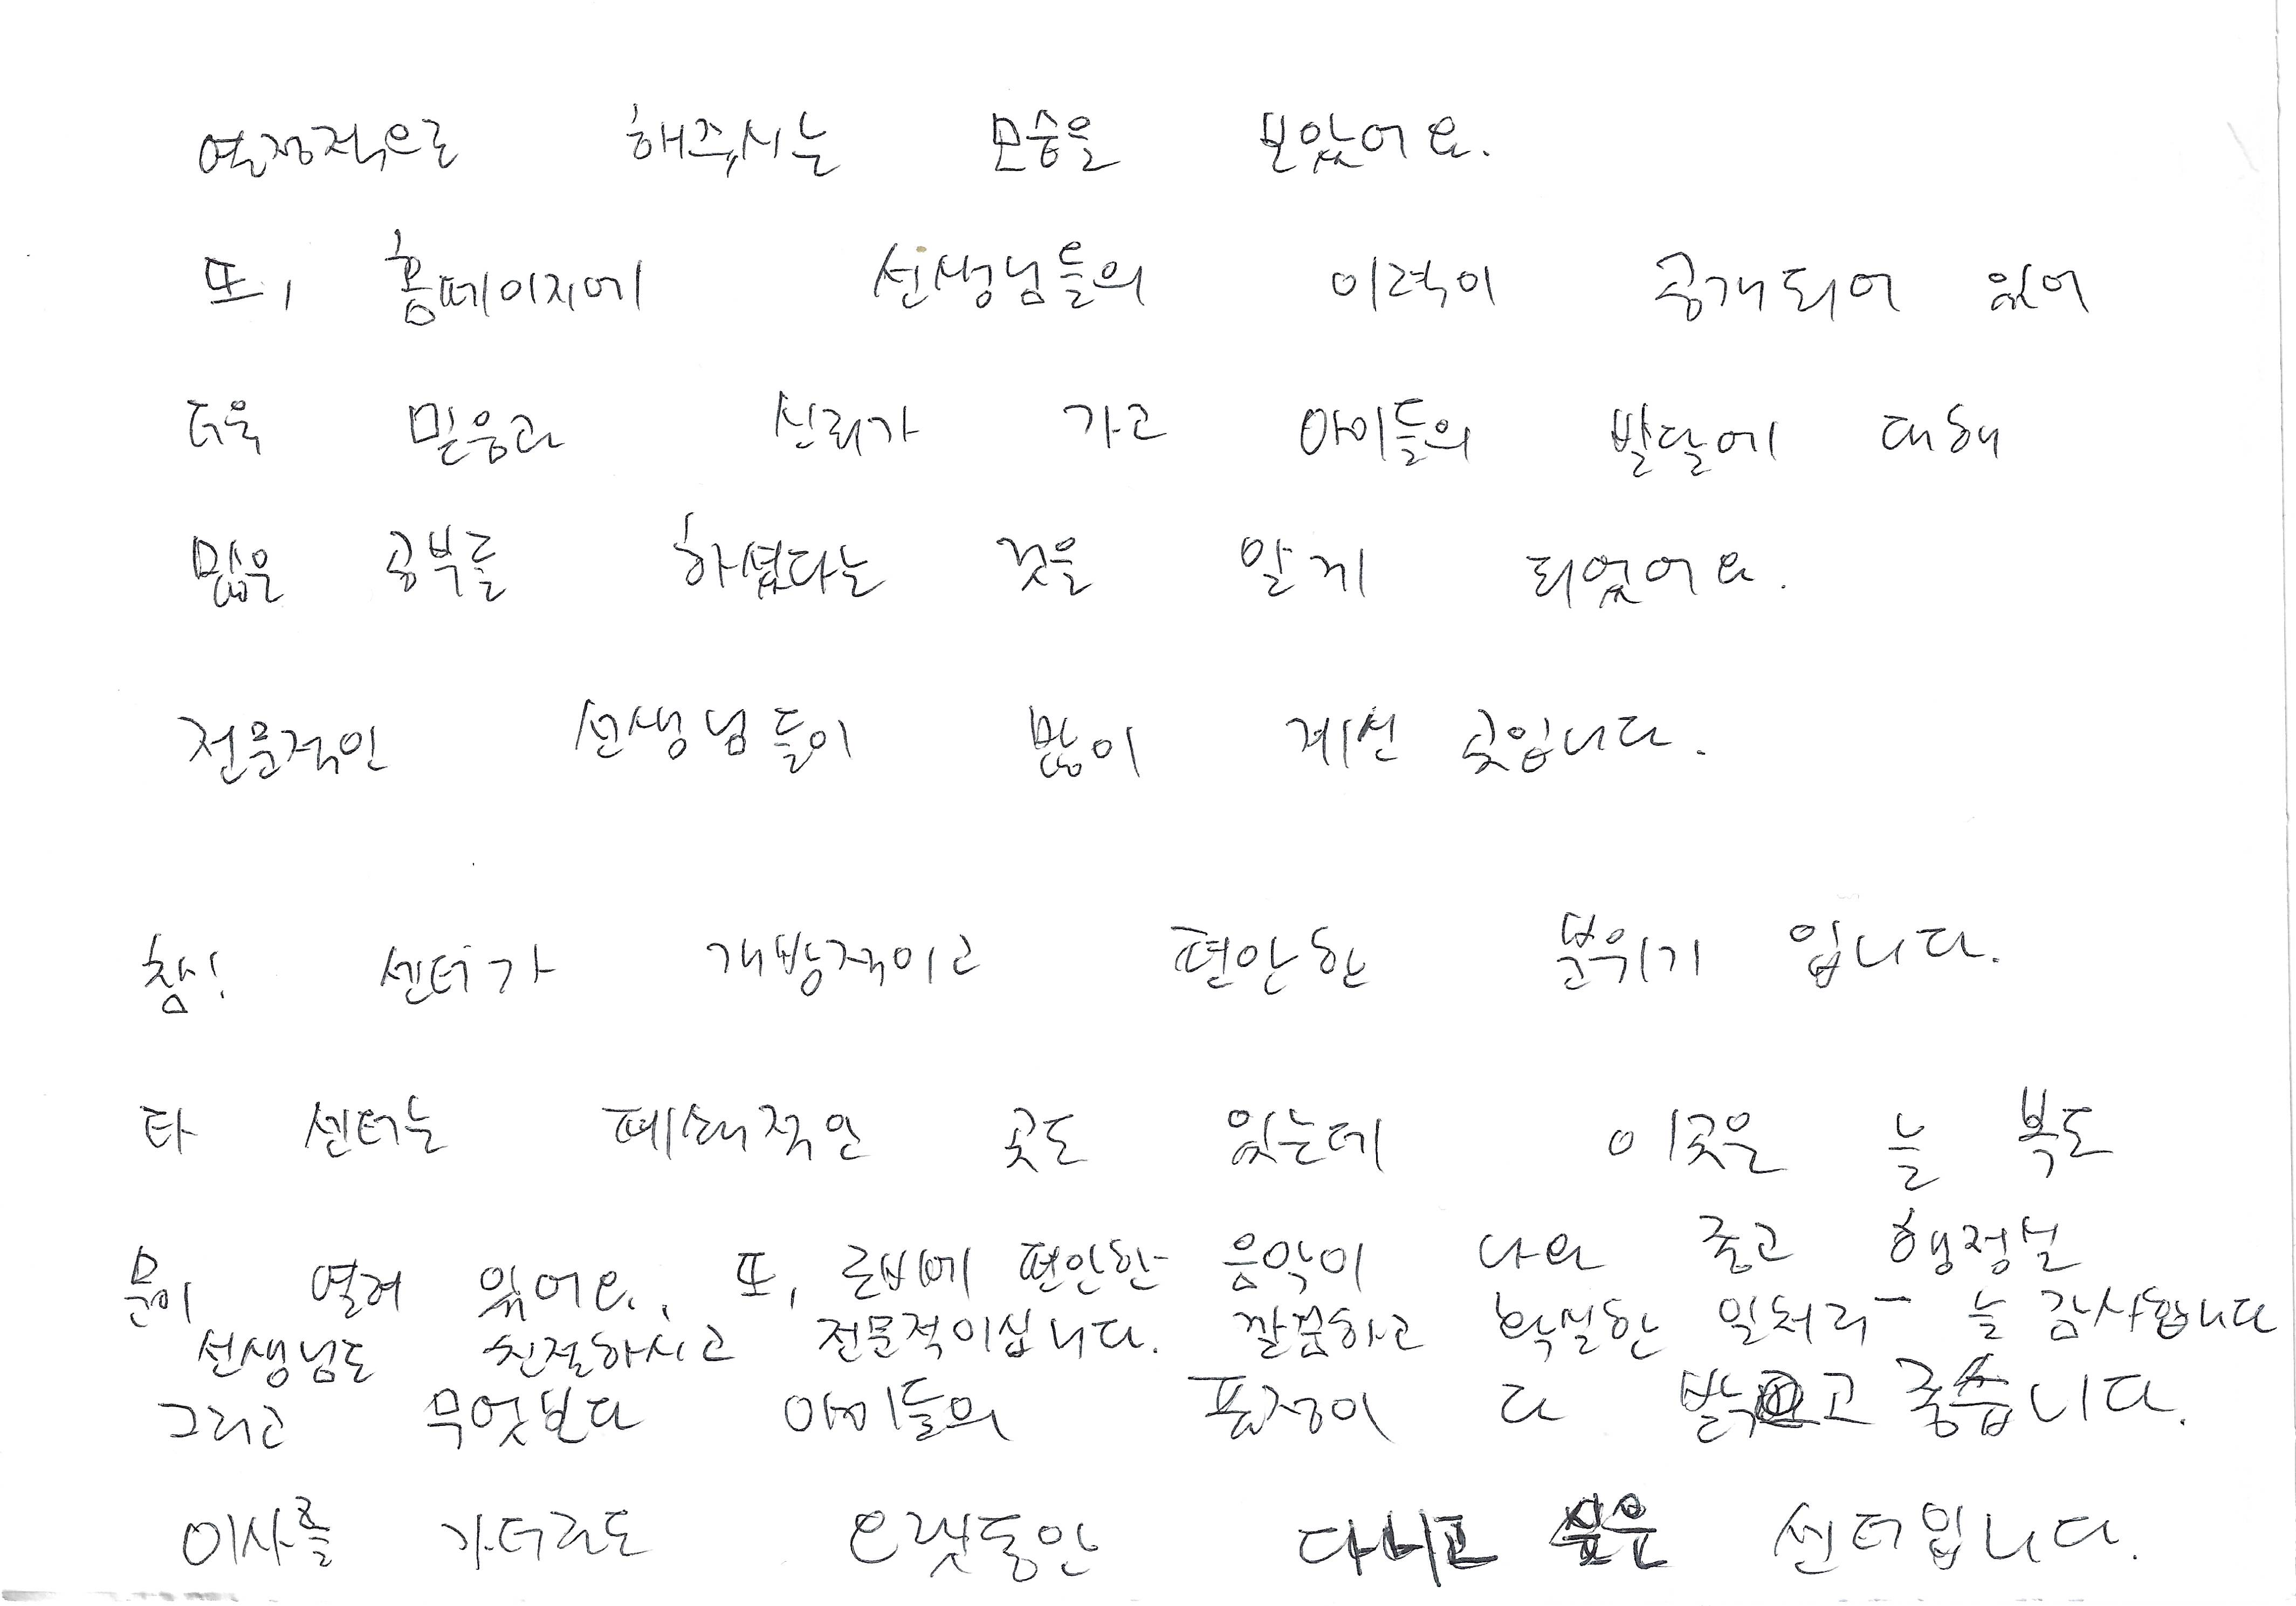 열정적으로 해주시는 모습을 보았어요.
또, 홈페이지에 선생님들의 이력이 공개되어 있어
더욱 믿음과 신뢰가 가고 아이들의 발달에 대해
많은 공부를 하셨다는 것을 알게 되었어요.
전문적인 선생님들이 많이 계신 곳입니다.
참! 센터가 개방적이고 편안한 분위기 입니다.
타 센터는 폐쇄적인 곳도 있는데 이곳은 늘 복도
문이 열려 있어요. 또, 로비에 편안한 음악이 나와 좋고 행정실
선생님도 친절하시고 전문적이십니다. 깔끔하고 확실한 일처리- 늘 감사합니다
그리고 무엇보다 아이들의 표정이 다 밝고 좋습니다.
이사를 가더라도 오랫동안 다니고 싶은 센터입니다.